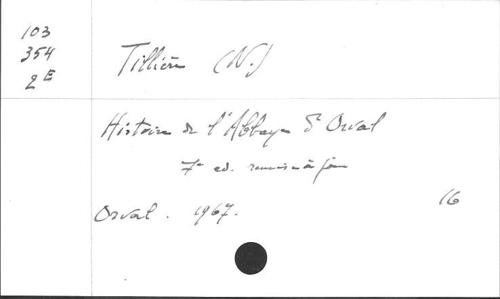 103
354
2E
Tillière (N.)
Histoire de l'Abbaye d'Orval
7e ed. remise à jour
Orval. 1967.
16